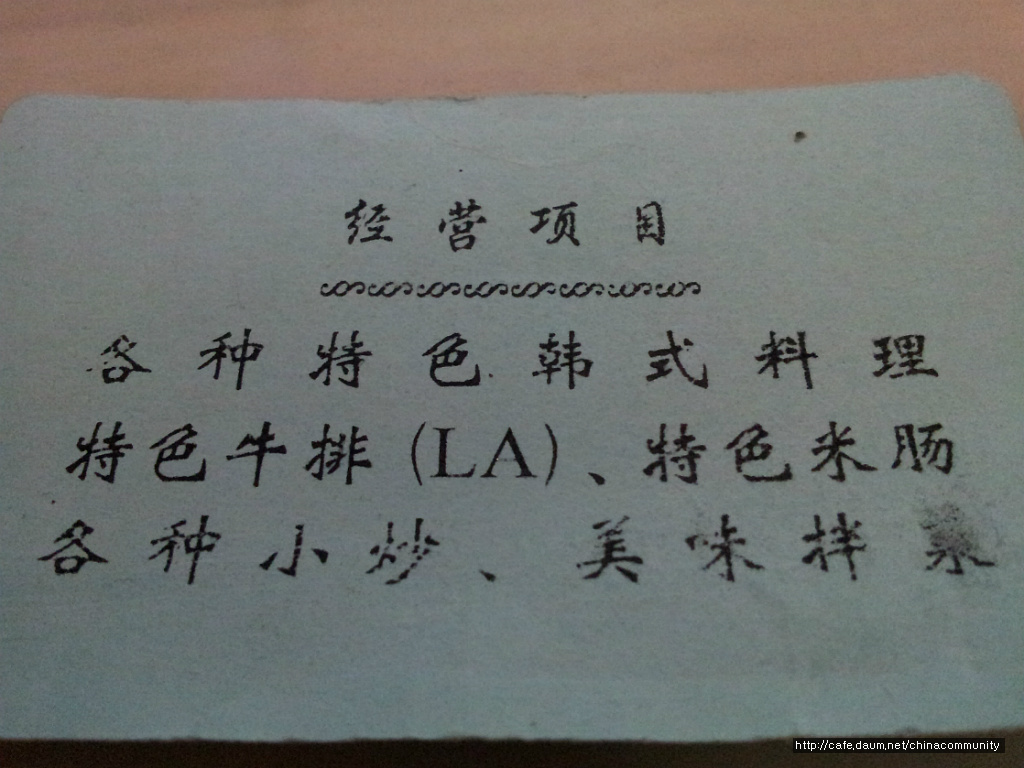 经营项目
各种特色韩式料理
特色牛排(LA)、特色米肠
各种小炒、美味拌菜
http://cafe.daum.net/chinacommunity